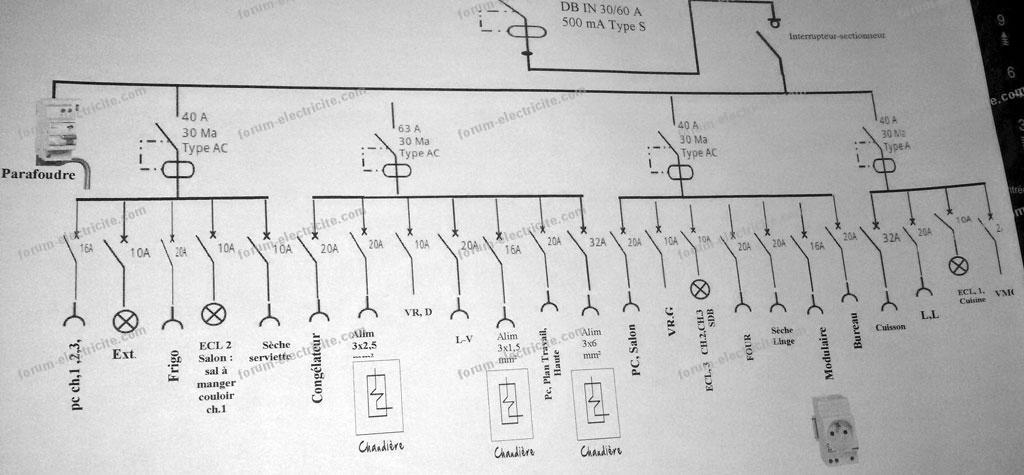 DB IN 30/60 A
500 mA Type S
Interrupteur-sectionneur
9
6
3
forum-electricite.com
forum-electricite.com
forum-electricite.com
forum-electricite.com
forum-electricite.com
forum-electricite.com
forum-electricite.com
Parafoudre
40 A
30 Ma
Type AC
63 A
30 Ma
Type AC
40 A
30 Ma
Type AC
40 A
30 Ma
Type A
16A
10A
20A
10A
10A
20A
20A
10A
20A
16A
20A
32A
20A
10A
10A
20A
20A
16A
20A
32A
20A
10A
2.
forum-electricite.com
forum-electricite.com
forum-electricite.com
forum-electricite.com
forum-electricite.com
forum-electricite.com
pc ch,1 ,2,3,
Ext.
Frigo
ECL 2
Salon :
sal à
manger
couloir
ch.1
Sèche
serviette
Congélateur
Alim
3x2,5
mm²
Chaudière
VR, D
L-V
Alim
3x1,5
mm²
Chaudière
Pc, Plan Travail,
Haute
Alim
3x6
mm²
Chaudière
PC, Salon
VR.G
ECL, 3 CH.2,CH.3
SDB
FOUR
Sèche
Linge
Modulaire
Bureau
Cuisson
L,L
ECL, 1,
Cuisine
VMC